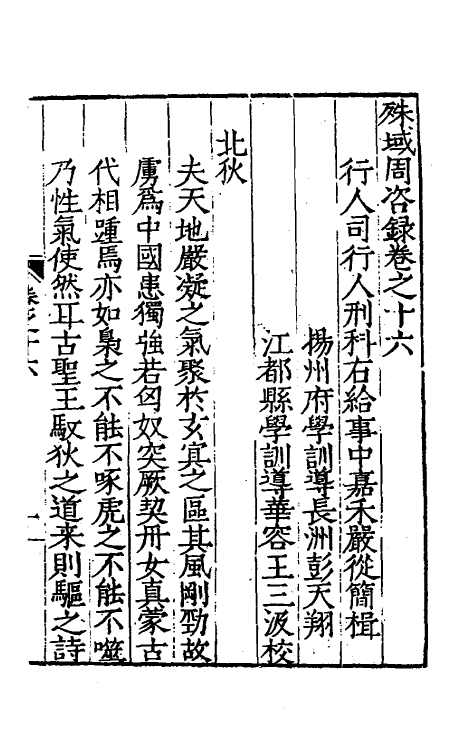 殊域周咨録卷之十六
行人司行人刑科右給事中嘉禾嚴從簡楫
揚州府學訓導長洲彭天翔
江都縣學訓導華容王三汲校
北狄
夫天地嚴凝之氣聚於玄冥之區其風剛勁故
虜爲中國患獨強若匈奴突厥契丹女真蒙古
代相踵焉亦如梟之不能不啄虎之不能不噬
乃性氣使然耳古聖王馭狄之道来則驅之詩
卷之十六
一